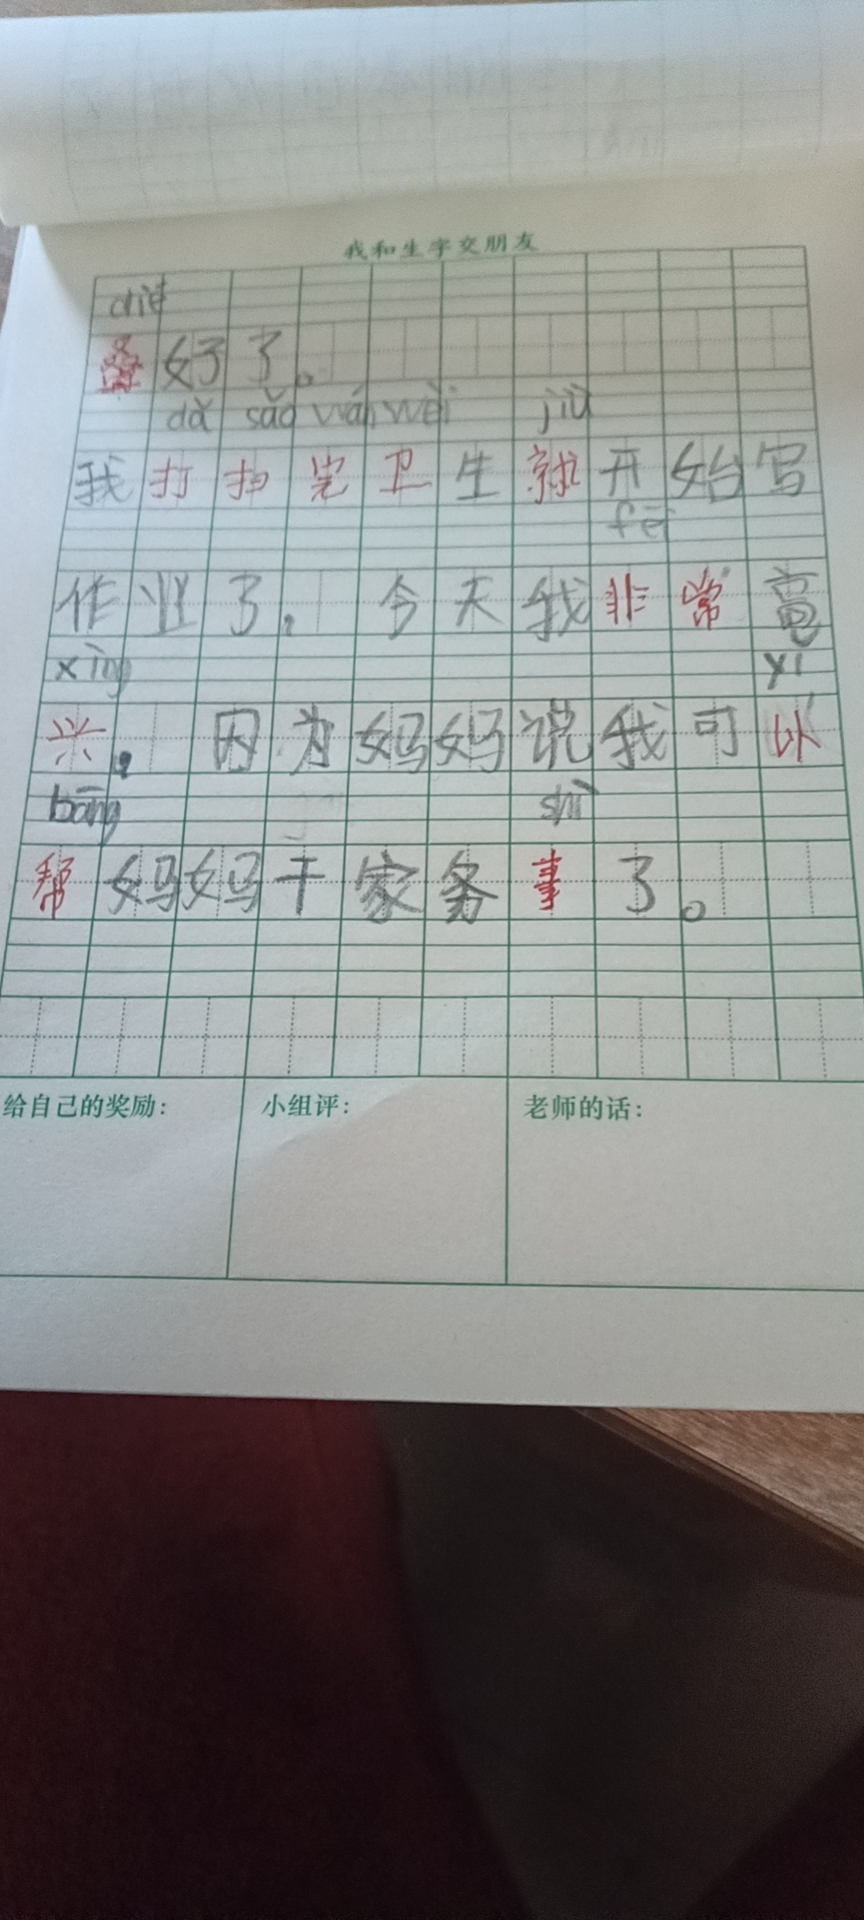 我和生字交朋友
dié
叠好了。
dǎ sǎo wán wèi jiù
我打扫完卫生就开始写
fēi
作业了，今天我非常高
xìng yǐ
兴，因为妈妈说我可以
bāng shì
帮妈妈干家务事了。
给自己的奖励：
小组评：
老师的话：